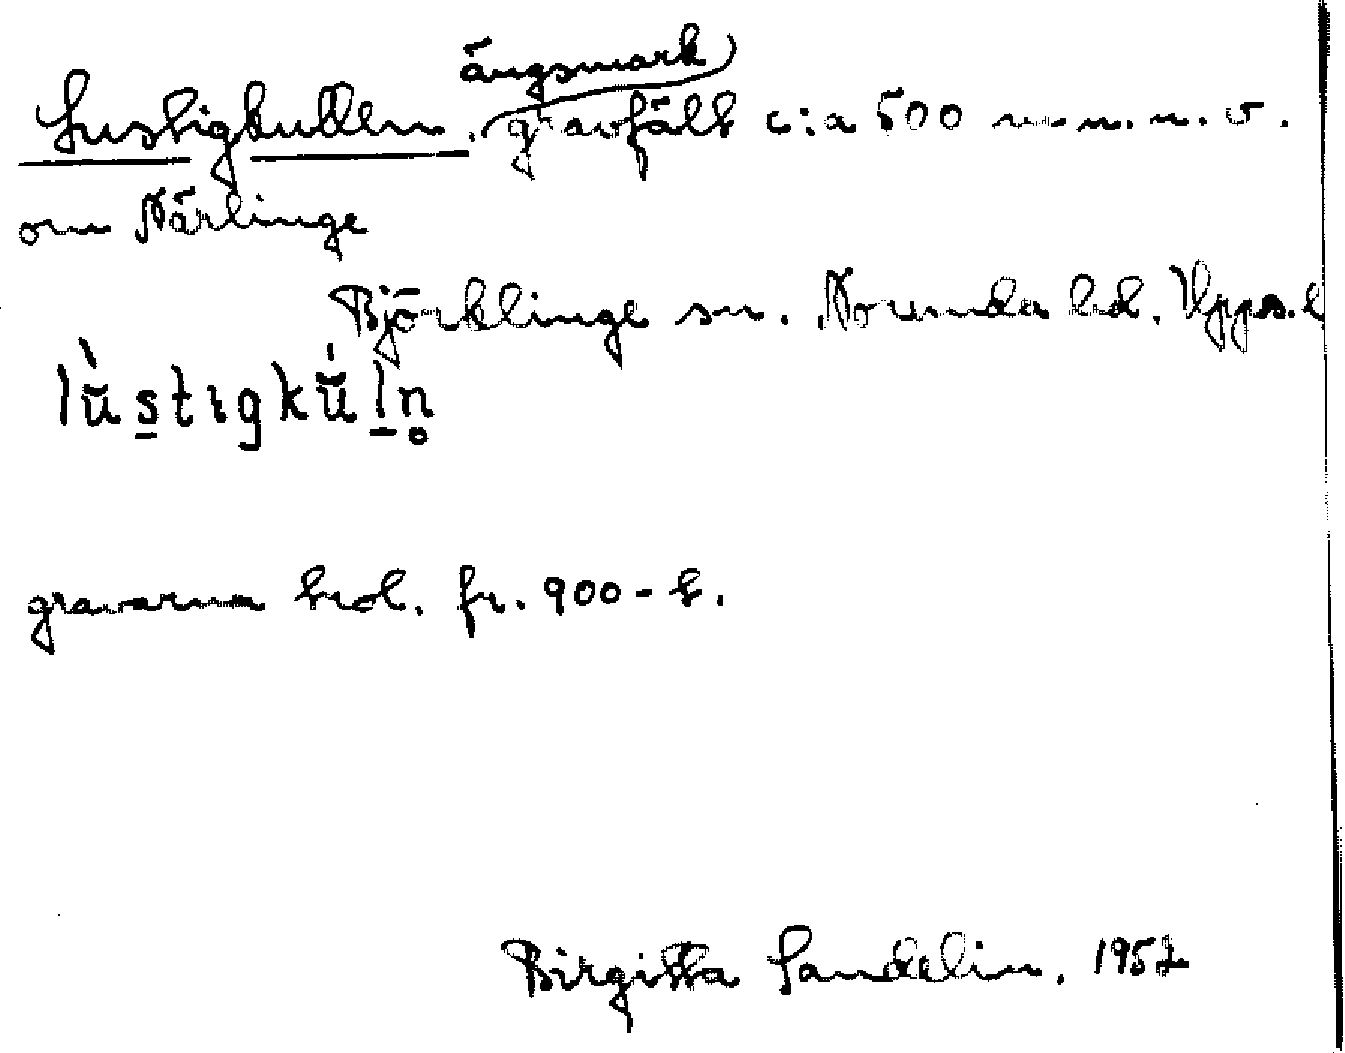 ängsmark
Lustigkullen. gravfält c:a 500 m n. n. v.
om Närlinge
Björklinge sn. Norunda hd. Upps.l
lù̆stɩgkú̆l̠n̥
gravarna trol. fr. 900-t.
Birgitta Sandelin. 1952